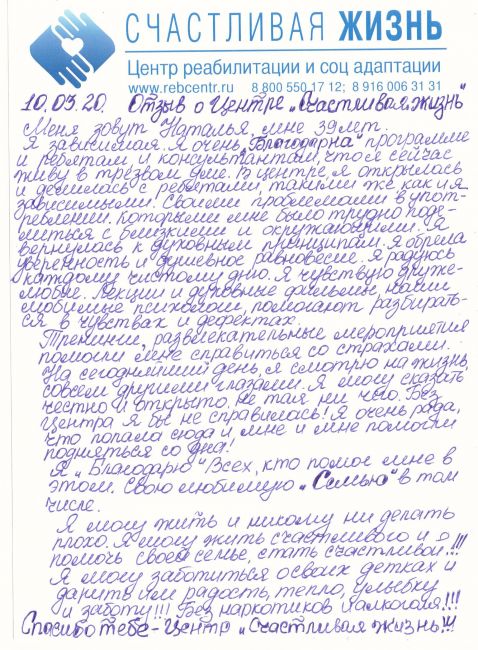 СЧАСТЛИВАЯ ЖИЗНЬ
Центр реабилитации и соц адаптации
www.rebcentr.ru 8 800 550 17 12; 8 916 006 31 31
10.03.20. Отзыв о Центре „Счастливая жизнь"
Меня зовут Наталья, мне 39 лет.
Я зависимая. Я очень „Благодарна" программе
и ребятам, и консультантам, что я сейчас
живу в трезвом уме. В центре я открылась
и делилась с ребятами, такими же как и я
зависимыми. Своими проблемами в упот-
реблении. Которыми мне было трудно поде-
литься с близкими и окружающими. Я
вернулась к духовным принципам. Я обрела
уверенность и душевное равновесие. Я радуюсь
каждому чистому дню. Я чувствую друже-
любие. Лекции и духовные фильмы, наши
любимые психологи, помогают разбирать-
ся в чувствах и дефектах.
Тренинги, развлекательные мероприятия
помогли мне справиться со страхами.
На сегодняшний день, я смотрю на жизнь,
совсем другими глазами. Я могу сказать
честно и открыто, не тая ни чего. Без
Центра я бы не справилась! Я очень рада,
что попала сюда и мне и мне помогли
подняться со дна!
Я „Благодарю" Всех, кто помог мне в
этом. Свою любимую „Семью" в том
числе.
Я могу жить и никому ни делать
плохо. Я могу жить счастливого и
помочь своей семье, стать счастливой...!!!
Я могу заботиться о своих детках и
дарить им радость, тепло, улыбку
и заботу!!! Без наркотиков и алкоголя!!!
Спасибо тебе - Центр „Счастливая жизнь"!!!